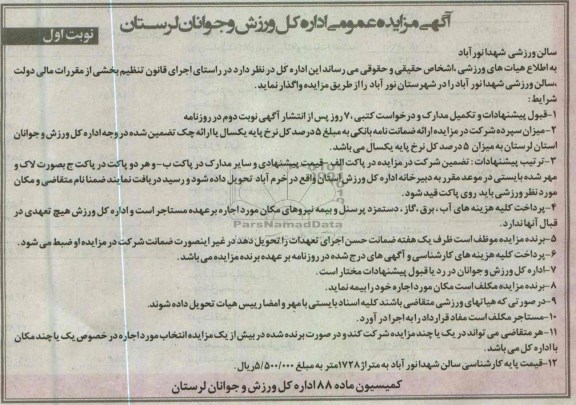 آگهی مزایده عمومی اداره کل ورزش و جوانان لرستان
نوبت اول
سالن ورزشی شهدا نورآباد
به اطلاع هیات های ورزشی ،اشخاص حقیقی و حقوقی می رساند این اداره کل در نظر دارد در راستای اجرای قانون تنظیم بخشی از مقررات مالی دولت
،سالن ورزشی شهدا نور آباد را در شهرستان نور آباد را از طریق مزایده واگذار نماید.
شرایط:
۱-قبول پیشنهادات و تکمیل مدارک و درخواست کتبی ۷۰ روز پس از انتشار آگهی نوبت دوم در روزنامه
۲-میزان سپرده شرکت در مزایده ارائه ضمانت نامه بانکی به مبلغ ۵ درصد کل نرخ پایه یکسال یا ارائه چک تضمین شده در وجه اداره کل ورزش و جوانان
استان لرستان به میزان ۵ درصد کل نرخ پایه یکسال می باشد.
۳-ترتیب پیشنهادات : تضمین شرکت در مزایده در پاکت الف-قیمت پیشنهادی و سایر مدارک در پاکت ب-و هر دو پاکت در پاکت ج بصورت لاک و
مهر شده بایستی در موعد مقرر به دبیرخانه اداره کل ورزش استان واقع در خرم آباد تحویل داده شود و رسید دریافت نمایند ضمنا نام متقاضی و مکان
مورد نظر ورزشی باید روی پاکت قید شود.
۴-پرداخت کلیه هزینه های آب ، برق ،گاز ، دستمزد پرسنل و بیمه نیروهای مکان مورد اجاره بر عهده مستاجر است و اداره کل ورزش هیچ تعهدی در
قبال آنها ندارد.
۵-برنده مزایده موظف است ظرف یک هفته ضمانت حسن اجرای تعهدات را تحویل دهد در غیر اینصورت ضمانت شرکت در مزایده او ضبط می شود.
۶-پرداخت کلیه هزینه های کارشناسی و آگهی های درج شده در روزنامه بر عهده برنده مزایده می باشد.
۷-اداره کل ورزش و جوانان در رد یا قبول پیشنهادات مختار است.
۸-برنده مزایده مکلف است مکان مورد اجاره خود را بیمه نماید.
۹-در صورتی که هیاتهای ورزشی متقاضی باشند کلیه اسناد بایستی با مهر و امضا رییس هیات تحویل داده شوند.
۱۰-مستاجر مکلف است مفاد قرارداد را به اجرا در آورد.
۱۱-هر متقاضی می تواند در یک یا چند مزایده شرکت کند و در صورت برنده شده در بیش از یک مزایده انتخاب مورد اجاره در خصوص یک یا چند مکان
با اداره کل می باشد.
۱۲-قیمت پایه کارشناسی سالن شهدا نور آباد به متراژ ۱۷۲۸متر به مبلغ ۵/۵۰۰/۰۰۰ریال.
کمیسیون ماده ۸۸ اداره کل ورزش و جوانان لرستان
ParsNamadData